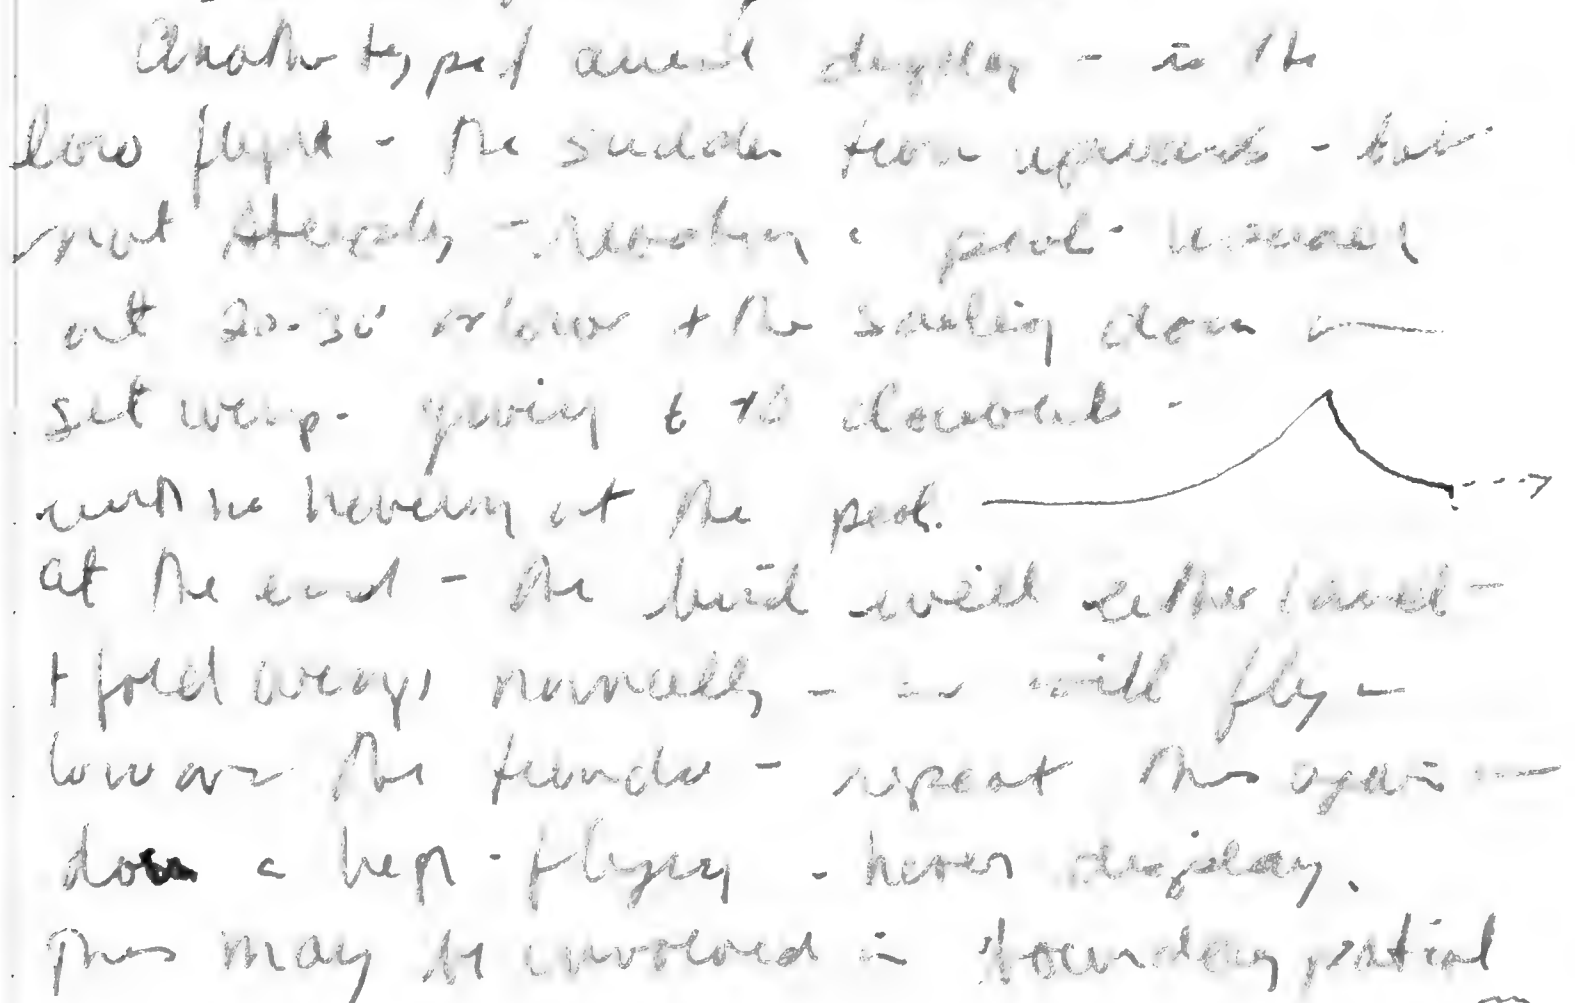 Another type of aerial display - is the
low flight - the sudden turn upwards - but
not steeply - reaching a peak usually
at 20-30' or lower + the sailing down
set wing - giving to downward -
with no hovering at the peak.
at the end - the bird will either land -
+ fold wings normally - or will fly -
low over the tundra - repeat this again -
down a high - flying - hover display.
This may be involved in boundary patrol